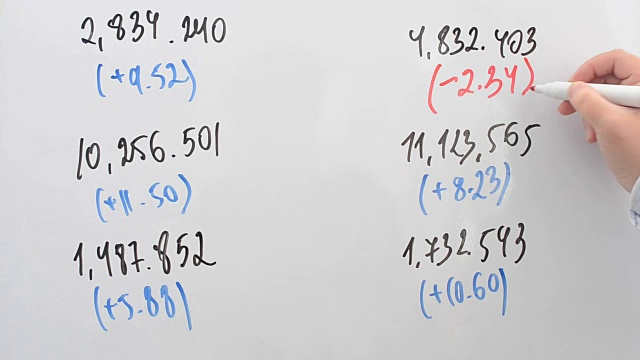 2,834.240
(+9.52)
10,256.501
(+11.50)
1,487.852
(+5.88)
4,832.403
(-2.34)
11,123,565
(+8.23)
1,732.543
(+10.60)